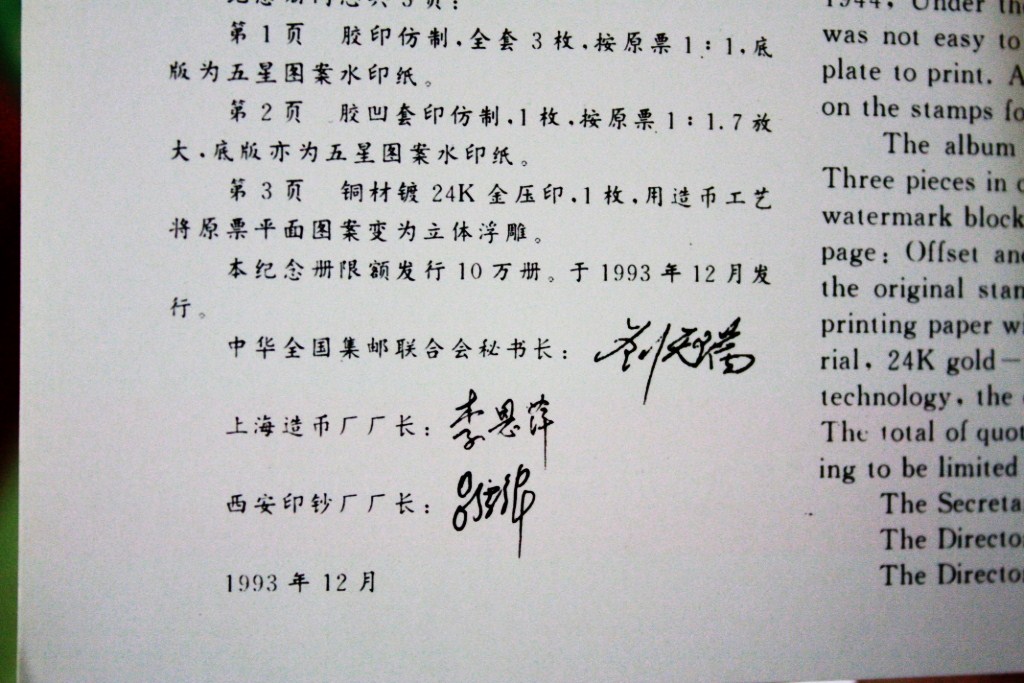 第1页 胶印仿制,全套3枚,按原票1:1,底
版为五星图案水印纸。
第2页 胶凹套印仿制,1枚,按原票1:1.7放
大,底版亦为五星图案水印纸。
第3页 铜材镀24K金压印,1枚,用造币工艺
将原票平面图案变为立体浮雕。
本纪念册限额发行10万册。于1993年12月发
行。
中华全国集邮联合会秘书长:
上海造币厂厂长:李恩萍
西安印钞厂厂长:
1993年12月
1944, Under the
was not easy to
plate to print. A
on the stamps fo
The album
Three pieces in
watermark block
page: Offset an
the original stan
printing paper w
rial, 24K gold—
technology, the
The total of quot
ing to be limited
The Secreta
The Directo
The Director